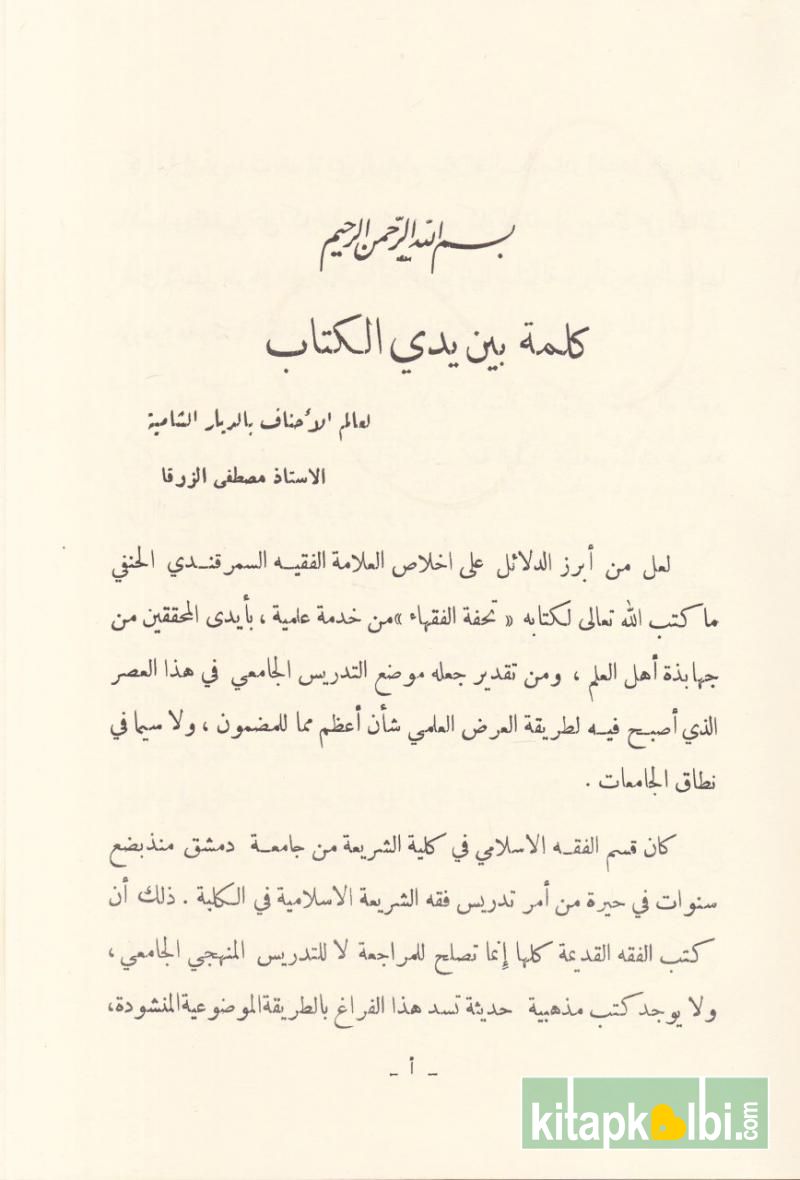 بسم الله الرحمن الرحيم
كلمة بين يدي الكتاب
لعالم الأحناف بالديار الشامية
الاستاذ مصطفى الزرقا
لعل من أبرز الدلائل على اخلاص العلامة الفقيه السمرقندي الحنفي
ما كتب الله تعالى لكتابه « تحفة الفقهاء » من خدمة علمية ، بأيدى المحققين من
جهابذة أهل العلم ، ومن تقدير جعله موضع التدريس الجامعي في هذا العصر
الذي أصبح فيه لطريقة العرض العلمي شأن أعظم مما للمضمون ، ولا سيما في
نطاق الجامعات .
كان قسم الفقه الاسلامي في كلية الشريعة من جامعة دمشق منذ بضع
سنوات في حيرة من أمر تدريس فقه الشريعة الاسلامية في الكلية . ذلك أن
كتب الفقه القديمة كلها إنما تصلح للمراجعة لا للتدريس المنهجي الجامعي ،
ولا يوجد كتب مذهبية حديثة تسد هذا الفراغ بالطريقة الموضوعية المنشودة،
- أ -
kitapkalbi.com